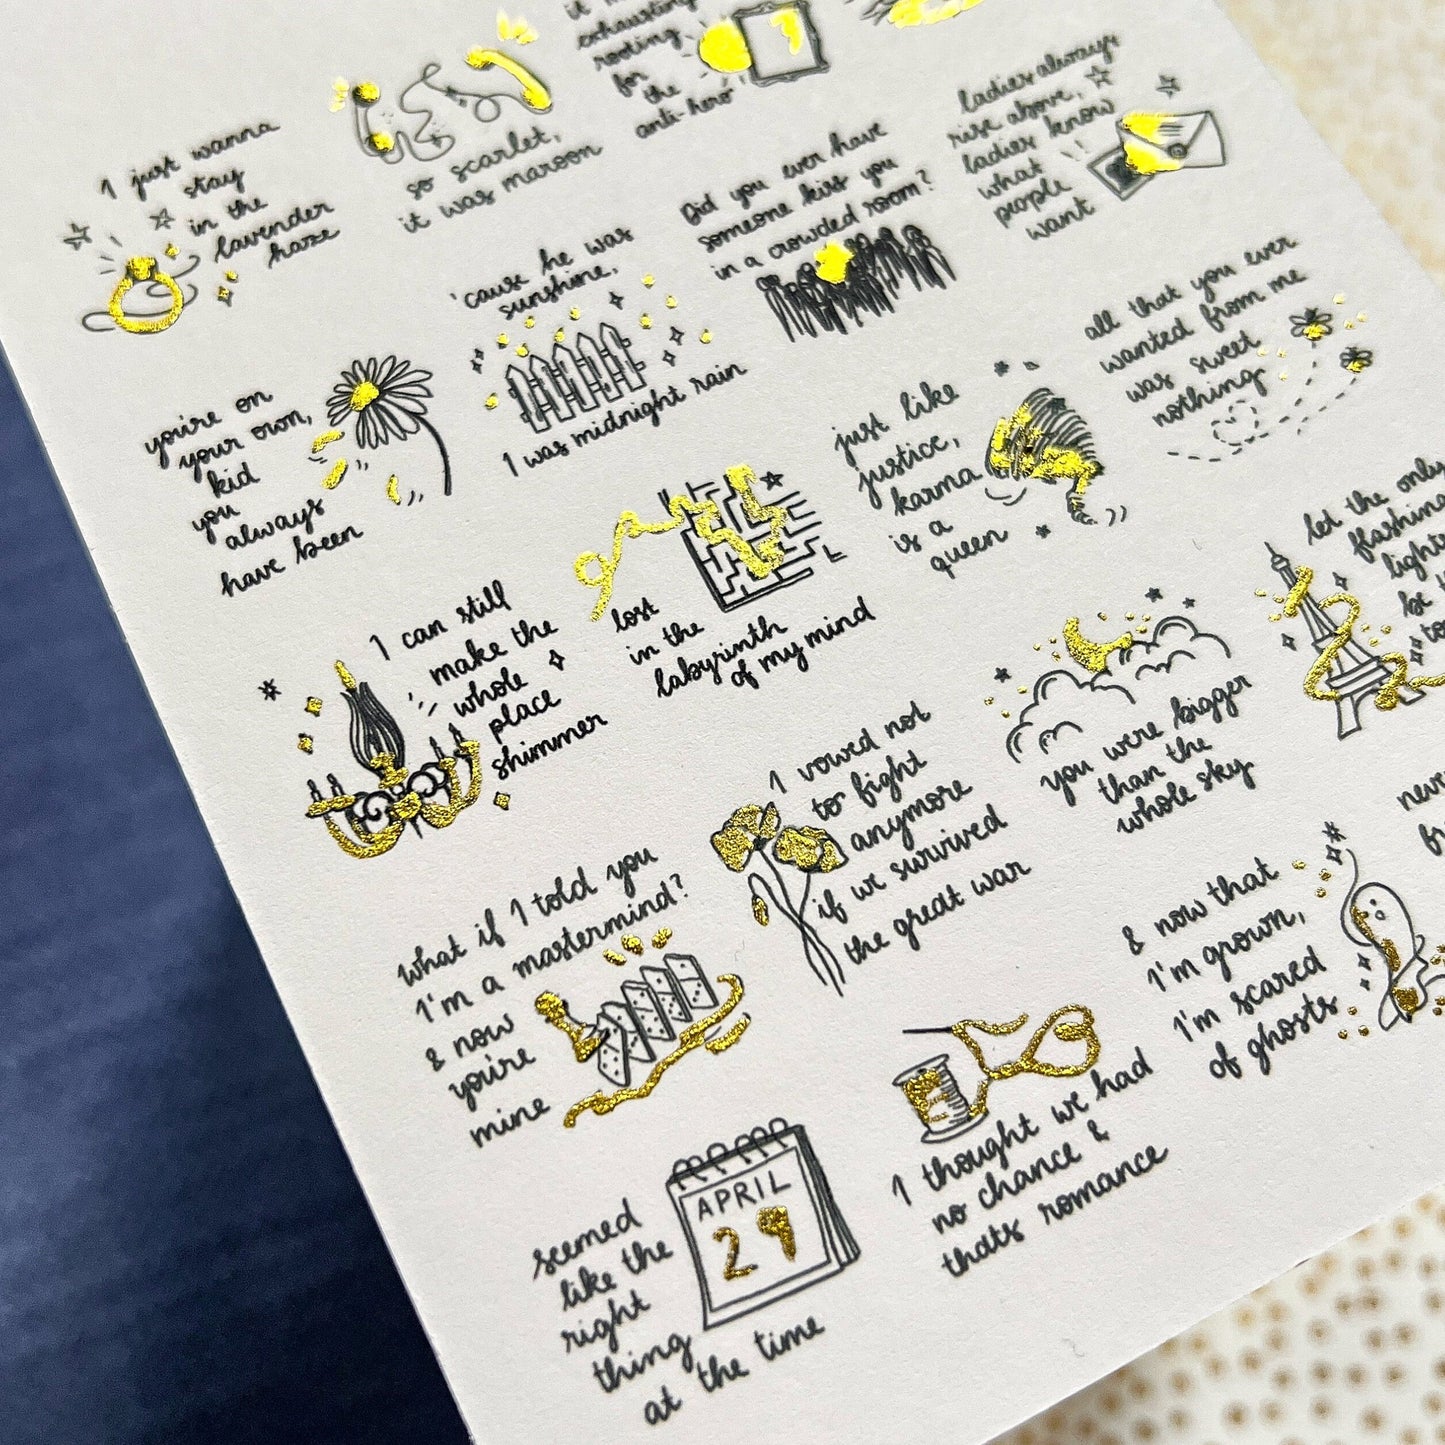 exhausting
rooting
for
the
anti-hero
I just wanna
stay
in the
lavender
haze
so scarlet,
it was maroon
ladies always
rise above,
ladies know
what
people
want
Did you ever have
someone kiss you
in a crowded room?
'cause he was
sunshine,
I was midnight rain
all that you ever
wanted from me
was sweet
nothing
you're on
your own,
kid
you
always
have been
just like
justice,
karma
is a
queen
lost
in the
labyrinth
of my mind
let the only
flashing
I can still
make the
whole
place
shimmer
you were bigger
than the
whole sky
I vowed not
to fight
anymore
if we survived
the great war
what if I told you
I'm a mastermind?
& now
you're
mine
& now that
I'm grown,
I'm scared
of ghosts
I thought we had
no chance &
thats romance
APRIL
29
seemed
like the
right
thing
at the time